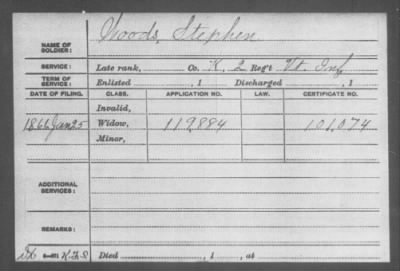 Woods, Stephen
NAME OF SOLDIER:
SERVICE: Late rank, Co. K, 2 Reg't Vt. Inf.
TERM OF SERVICE: Enlisted , 1 Discharged , 1
DATE OF FILING. CLASS. APPLICATION NO. LAW. CERTIFICATE NO.
Invalid,
1866 Jan 25 Widow, 119,884 101,074
Minor,
ADDITIONAL SERVICES:
REMARKS:
Died , 1 , at